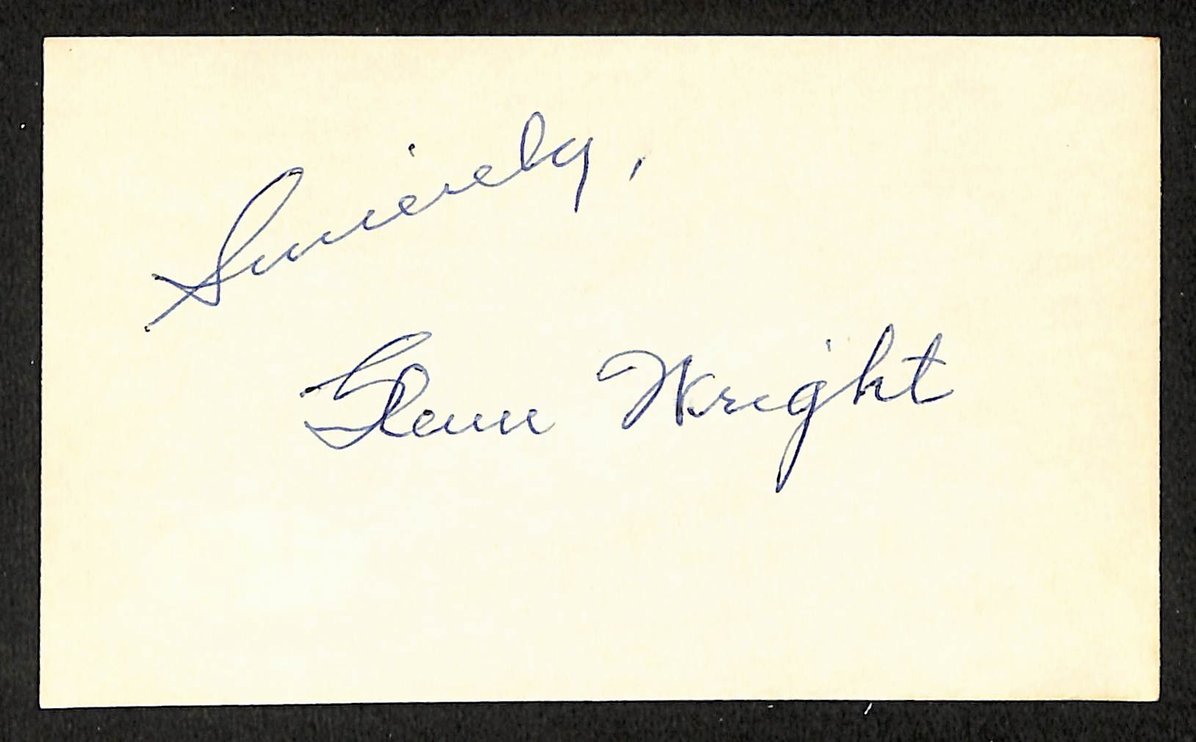 Sincerely,
Glenn Wright